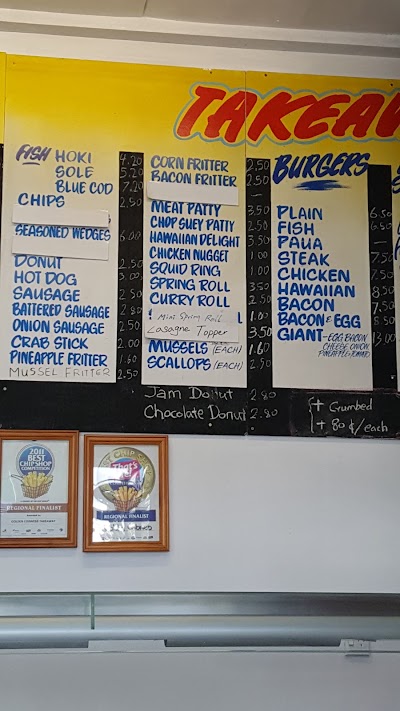 TAKEAW
FISH HOKI 4.20
SOLE 5.20
BLUE COD 7.20
CHIPS
SEASONED WEDGES 6.00
DONUT 2.50
HOT DOG 3.00
SAUSAGE 2.50
BATTERED SAUSAGE 2.80
ONION SAUSAGE 2.50
CRAB STICK 2.00
PINEAPPLE FRITTER 1.60
MUSSEL FRITTER 2.50
CORN FRITTER 2.50
BACON FRITTER 2.50
MEAT PATTY 3.50
CHOP SUEY PATTY 2.50
HAWAIIAN DELIGHT
CHICKEN NUGGET 1.00
SQUID RING 1.00
SPRING ROLL 3.50
CURRY ROLL 2.50
Mini Spring Roll 1.00
Lasagne Topper 3.50
MUSSELS (EACH) 1.60
SCALLOPS (EACH) 2.50
Jam Donut 2.80
Chocolate Donut 2.80
BURGERS
PLAIN 6.50
FISH 6.50
PAUA —
STEAK
CHICKEN
HAWAIIAN 8.50
BACON
BACON & EGG
GIANT - EGG BACON
CHEESE ONION
PINEAPPLE & TOMATO
+ Crumbed
+ 80¢/each
2011
BEST
CHIP SHOP
COMPETITION
REGIONAL FINALIST
REGIONAL FINALIST